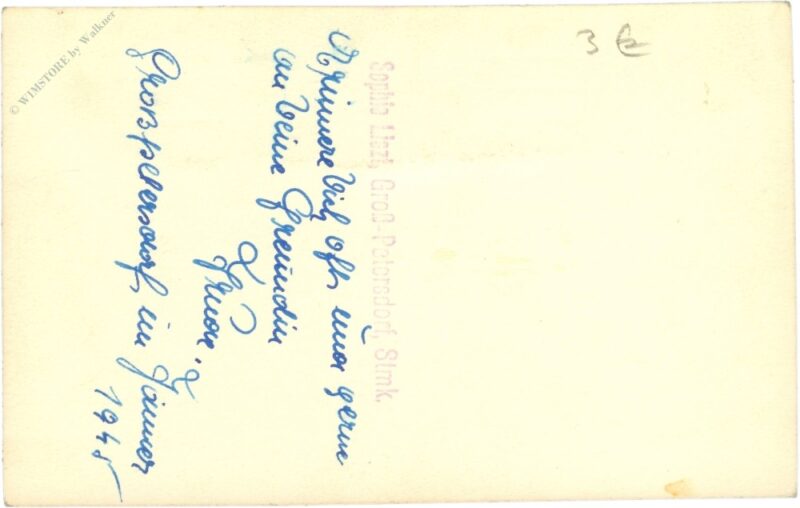 Erinnere Dich oft und gerne
an Deine Freundin
Großpetersdorf, im Jänner
1945
Sophie Liszt, Groß-Petersdorf, Stmk.
3 €
© WIMSTORE by Walkner